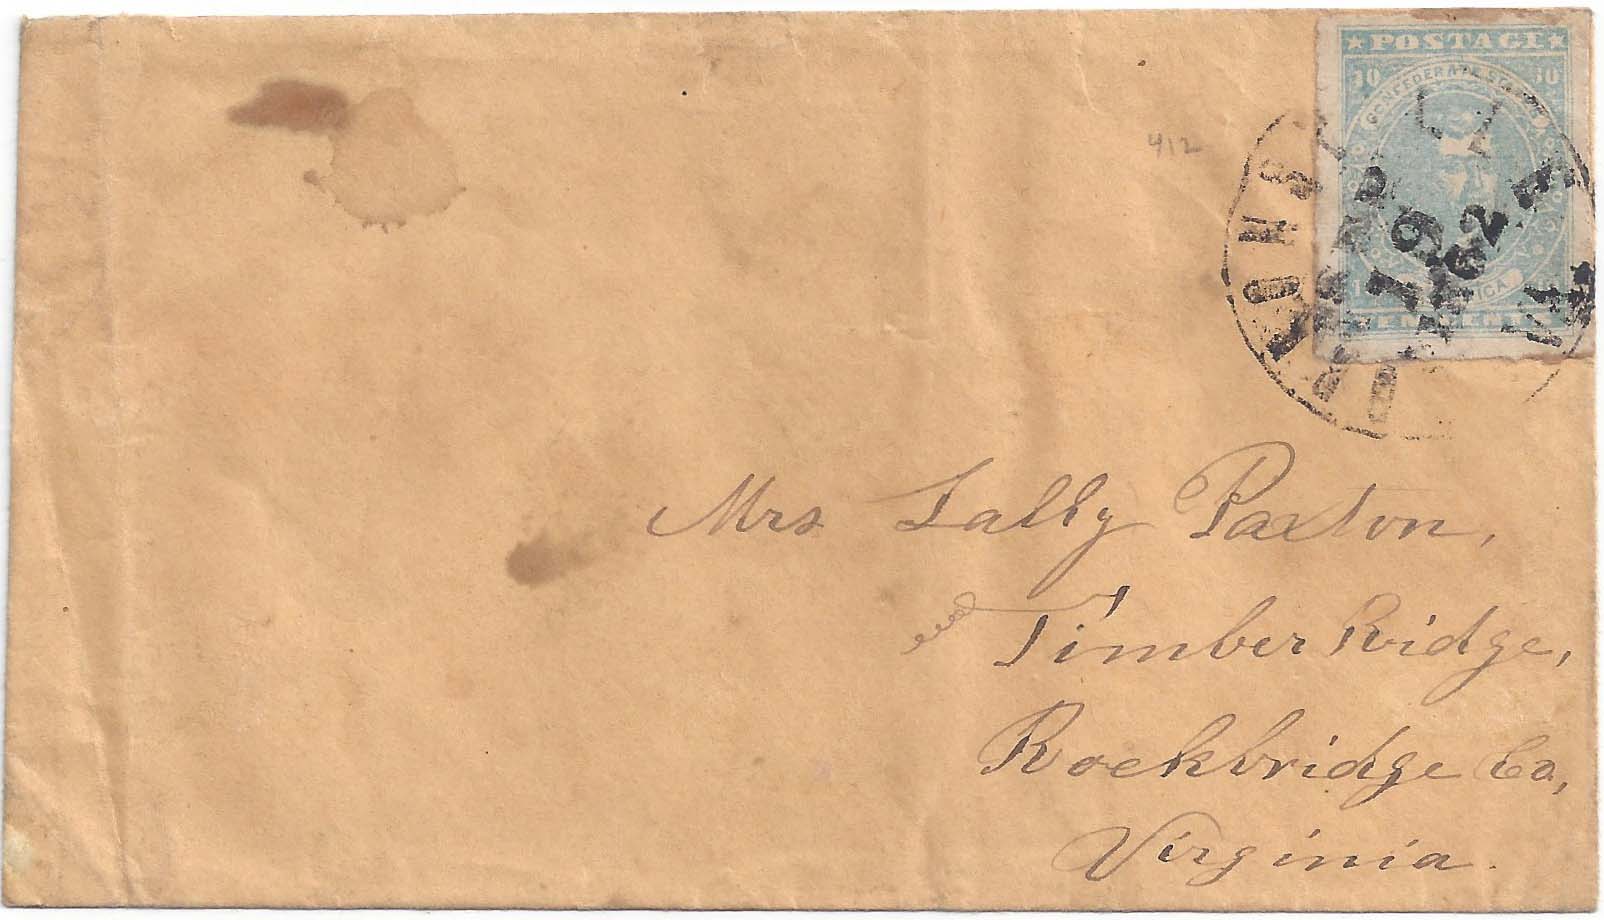 ★ POSTAGE ★
10 10
CONFEDERATE STATES
AMERICA
TEN CENTS
19
1862
412
Mrs Sally Paxton,
Timber Ridge,
Rockbridge Co,
Virginia.